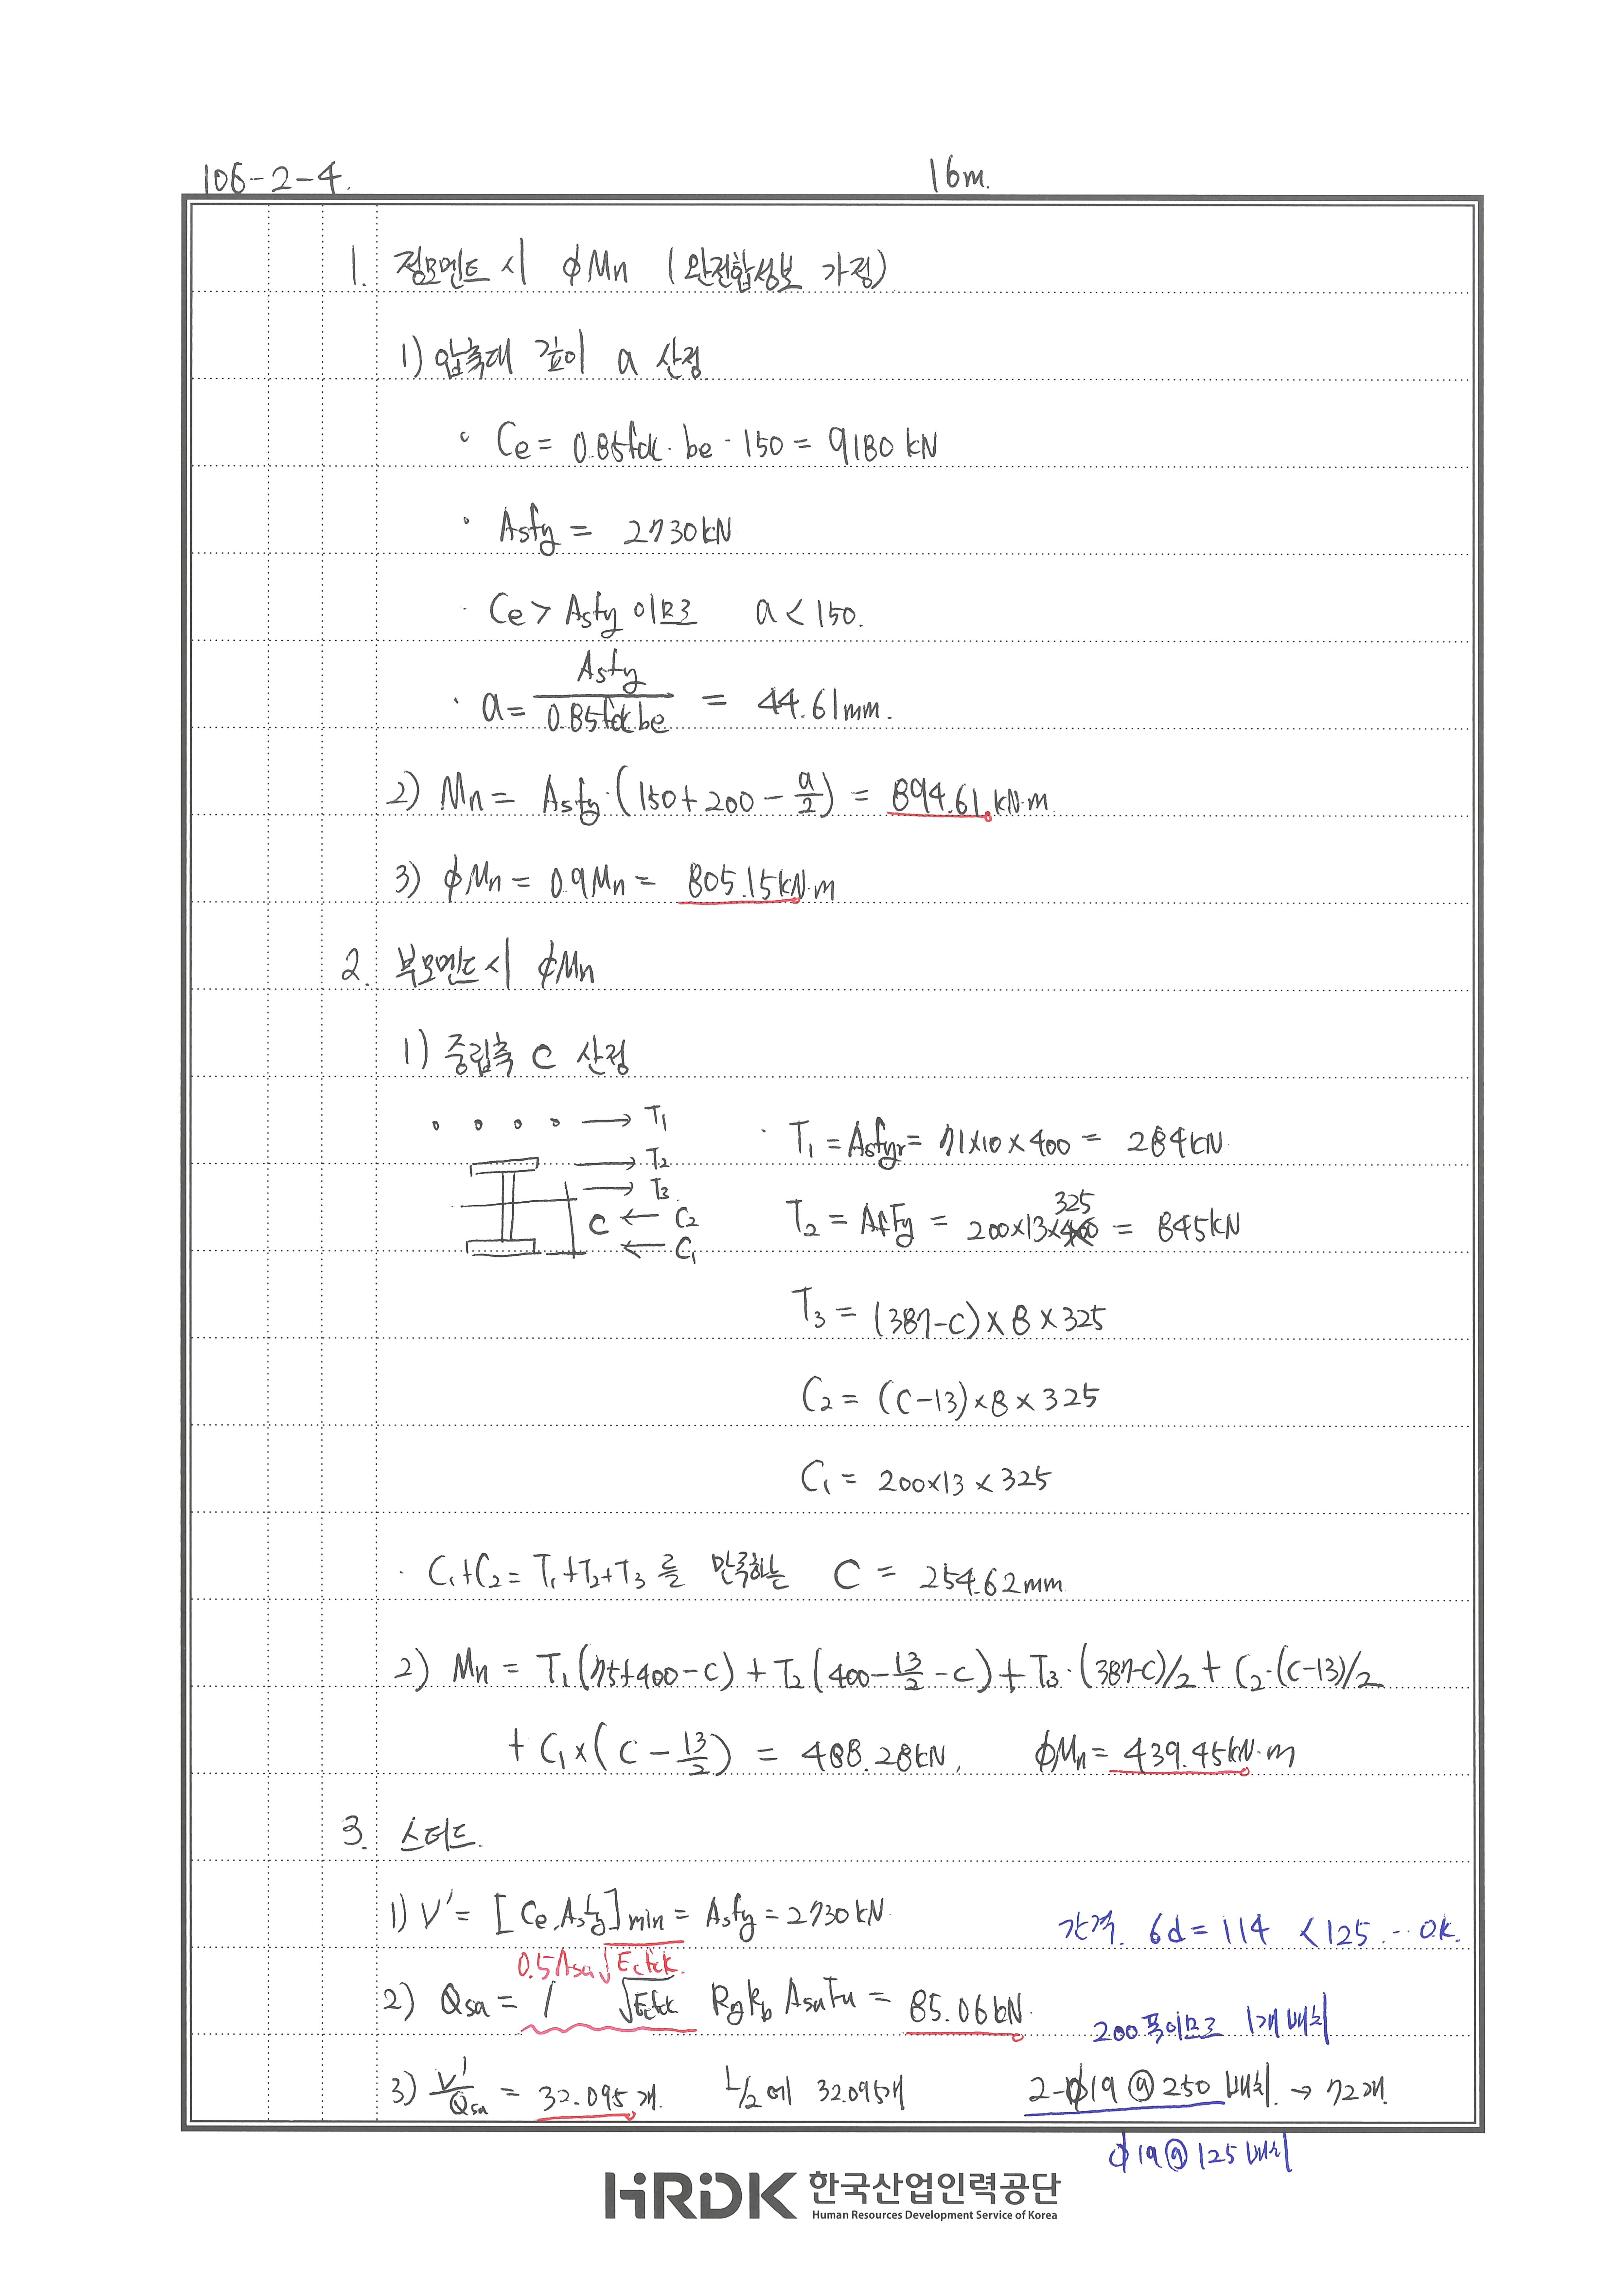 106-2-4.
16m.
1. 정모멘트 시 ϕMn (완전합성보 가정)
1) 압축대 깊이 a 산정
· Ce = 0.85fck · be · 150 = 9180 kN
· Asfy = 2730kN
· Ce > Asfy 이므로 a < 150.
· a = Asfy / 0.85fck be = 44.61mm.
2) Mn = Asfy · (150+200 - a/2) = 894.61 kN·m
3) ϕMn = 0.9Mn = 805.15kN·m
2. 부모멘트 시 ϕMn
1) 중립축 c 산정
→ T1
→ T2
→ T3
c ← C2
← C1
· T1 = Asfyr = 71×10×400 = 284kN
T2 = AfFy = 200×13×325 = 845kN
T3 = (387-c)×8×325
C2 = (c-13)×8×325
C1 = 200×13×325
· C1+C2 = T1+T2+T3 를 만족하는 C = 254.62mm
2) Mn = T1(75+400-c) + T2(400-13/2-c) + T3·(387-c)/2 + C2·(c-13)/2
+ C1×(c-13/2) = 488.28kN, ϕMn = 439.45kN·m
3. 스터드.
1) V' = [Ce, Asfy]min = Asfy = 2730kN
간격. 6d = 114 < 125 ... O.K.
0.5Asa√Ecfck
2) Qsa = / √Ecfck RgRp AsaFu = 85.06kN
200 폭이므로 1개 배치
3) V'/Qsa = 32.095개. L/2에 32.095개 2-ϕ19@250 배치. → 72개.
ϕ19@125 배치
HRDK 한국산업인력공단
Human Resources Development Service of Korea